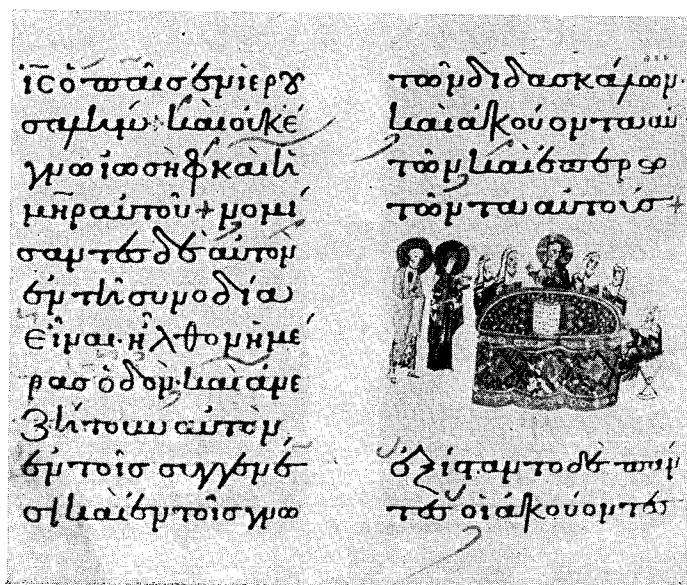 ι̅ς̅ ὁ παῖς ἐν ϊερου
σαλήμ· καὶ οὐκ ἔ
γνω ϊωσὴφ καὶ ἡ
μ̅η̅ρ αὐτοῦ + νομί
σαντες δὲ αὐτὸν
ἐν τῆ συνοδία
εἶναι· ἦλθον ἡμέ
ρας ὁδόν· καὶ ἀνε
ζήτουν αὐτὸν,
ἐν τοῖς συγγενέ
σι καὶ ἐν τοῖς γνω
τῶν διδασκάλων·
καὶ ἀκούοντα αὐ
τῶν καὶ ἐπερω
τῶντα αὐτούς +
ἐξίσταντο δὲ πάν
τες οἱ ἀκούοντες